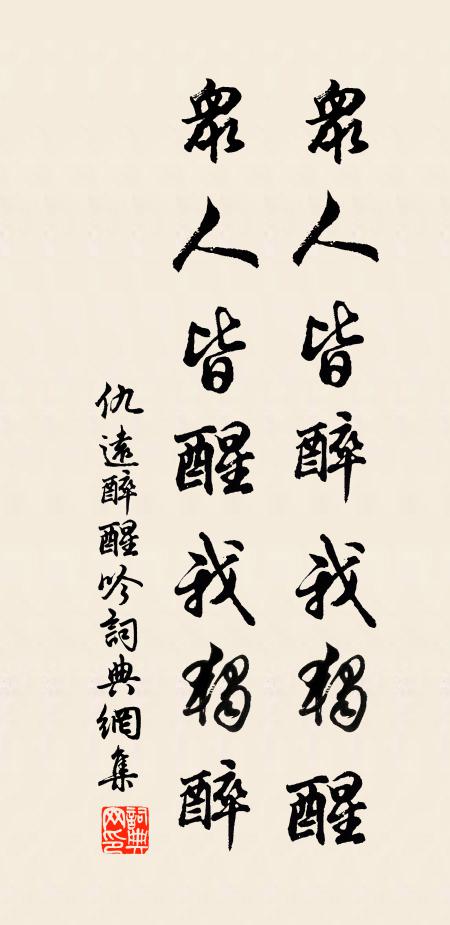 眾人皆醉我獨醒
眾人皆醒我獨醉
仇遠醉醒吟詞典網集
詞典
网印